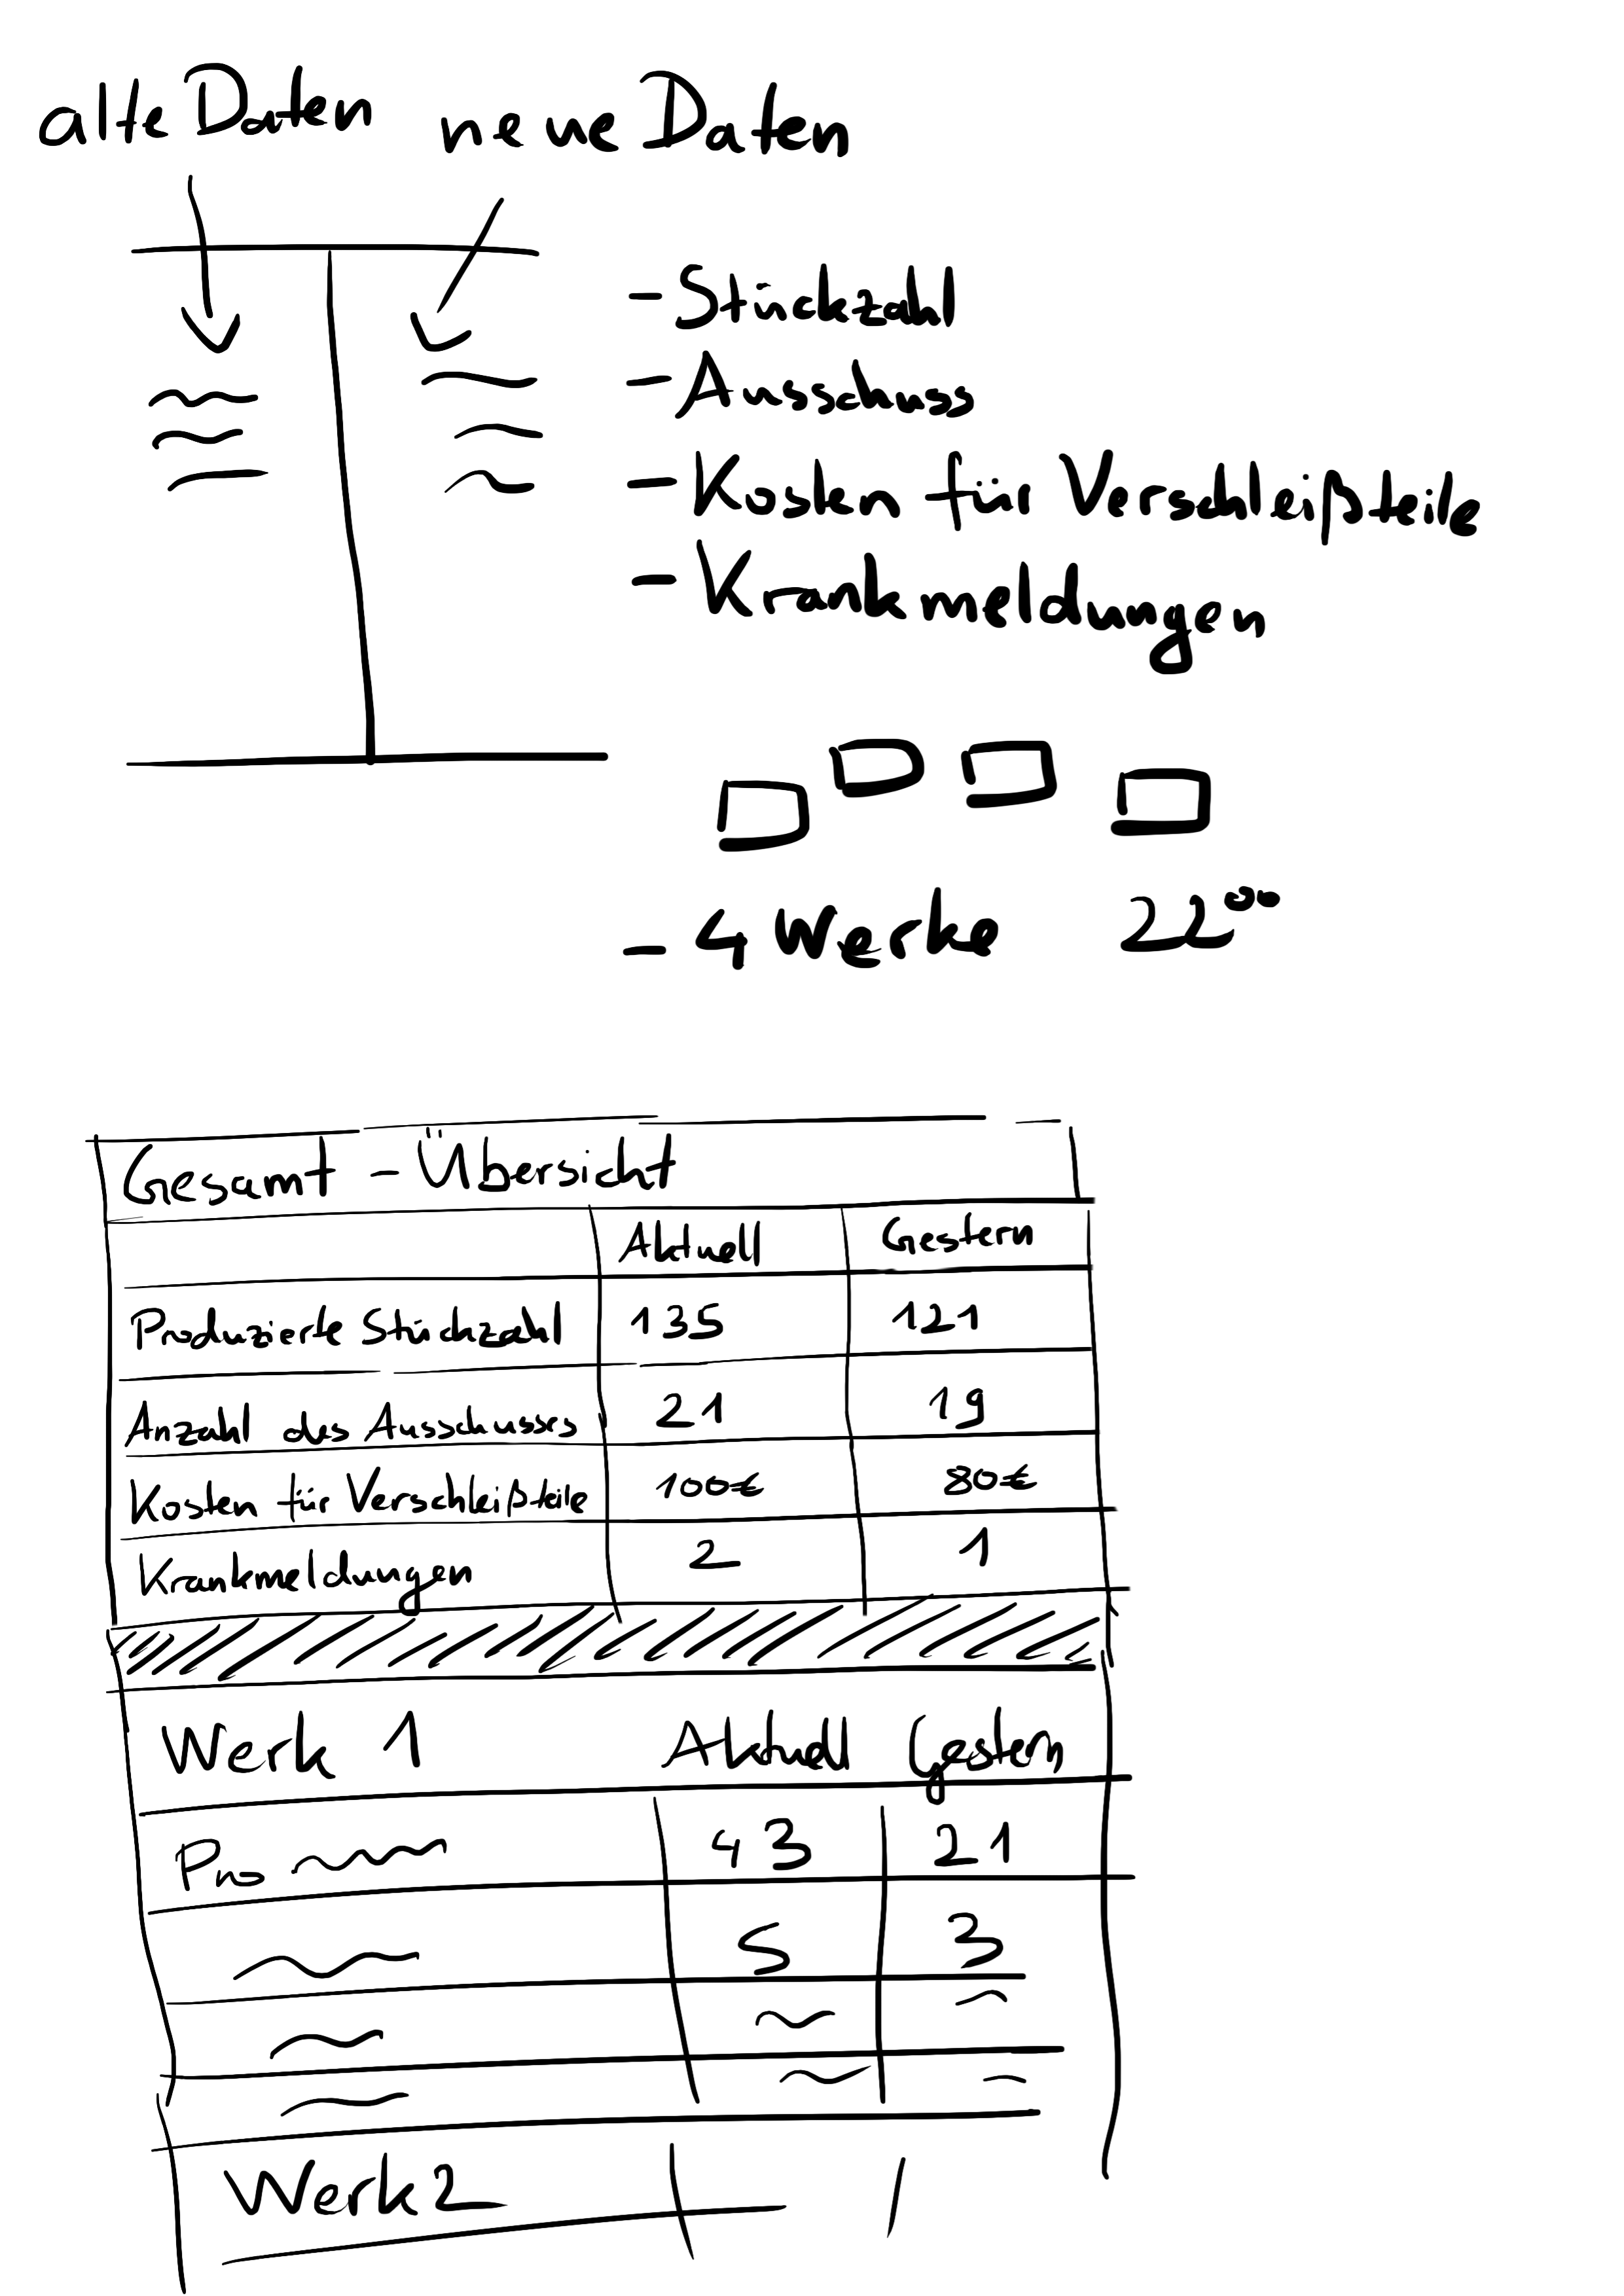 alte Daten neue Daten
- Stückzahl
- Ausschuss
- Kosten für Verschleißteile
- Krankmeldungen
- 4 Werke 22⁰⁰
Gesamt - Übersicht
Aktuell Gestern
Produzierte Stückzahl 135 121
Anzahl des Ausschusses 21 19
Kosten für Verschleißteile 100€ 80€
Krankmeldungen 2 1
Werk 1 Aktuell Gestern
Pro 43 21
5 3
Werk 2